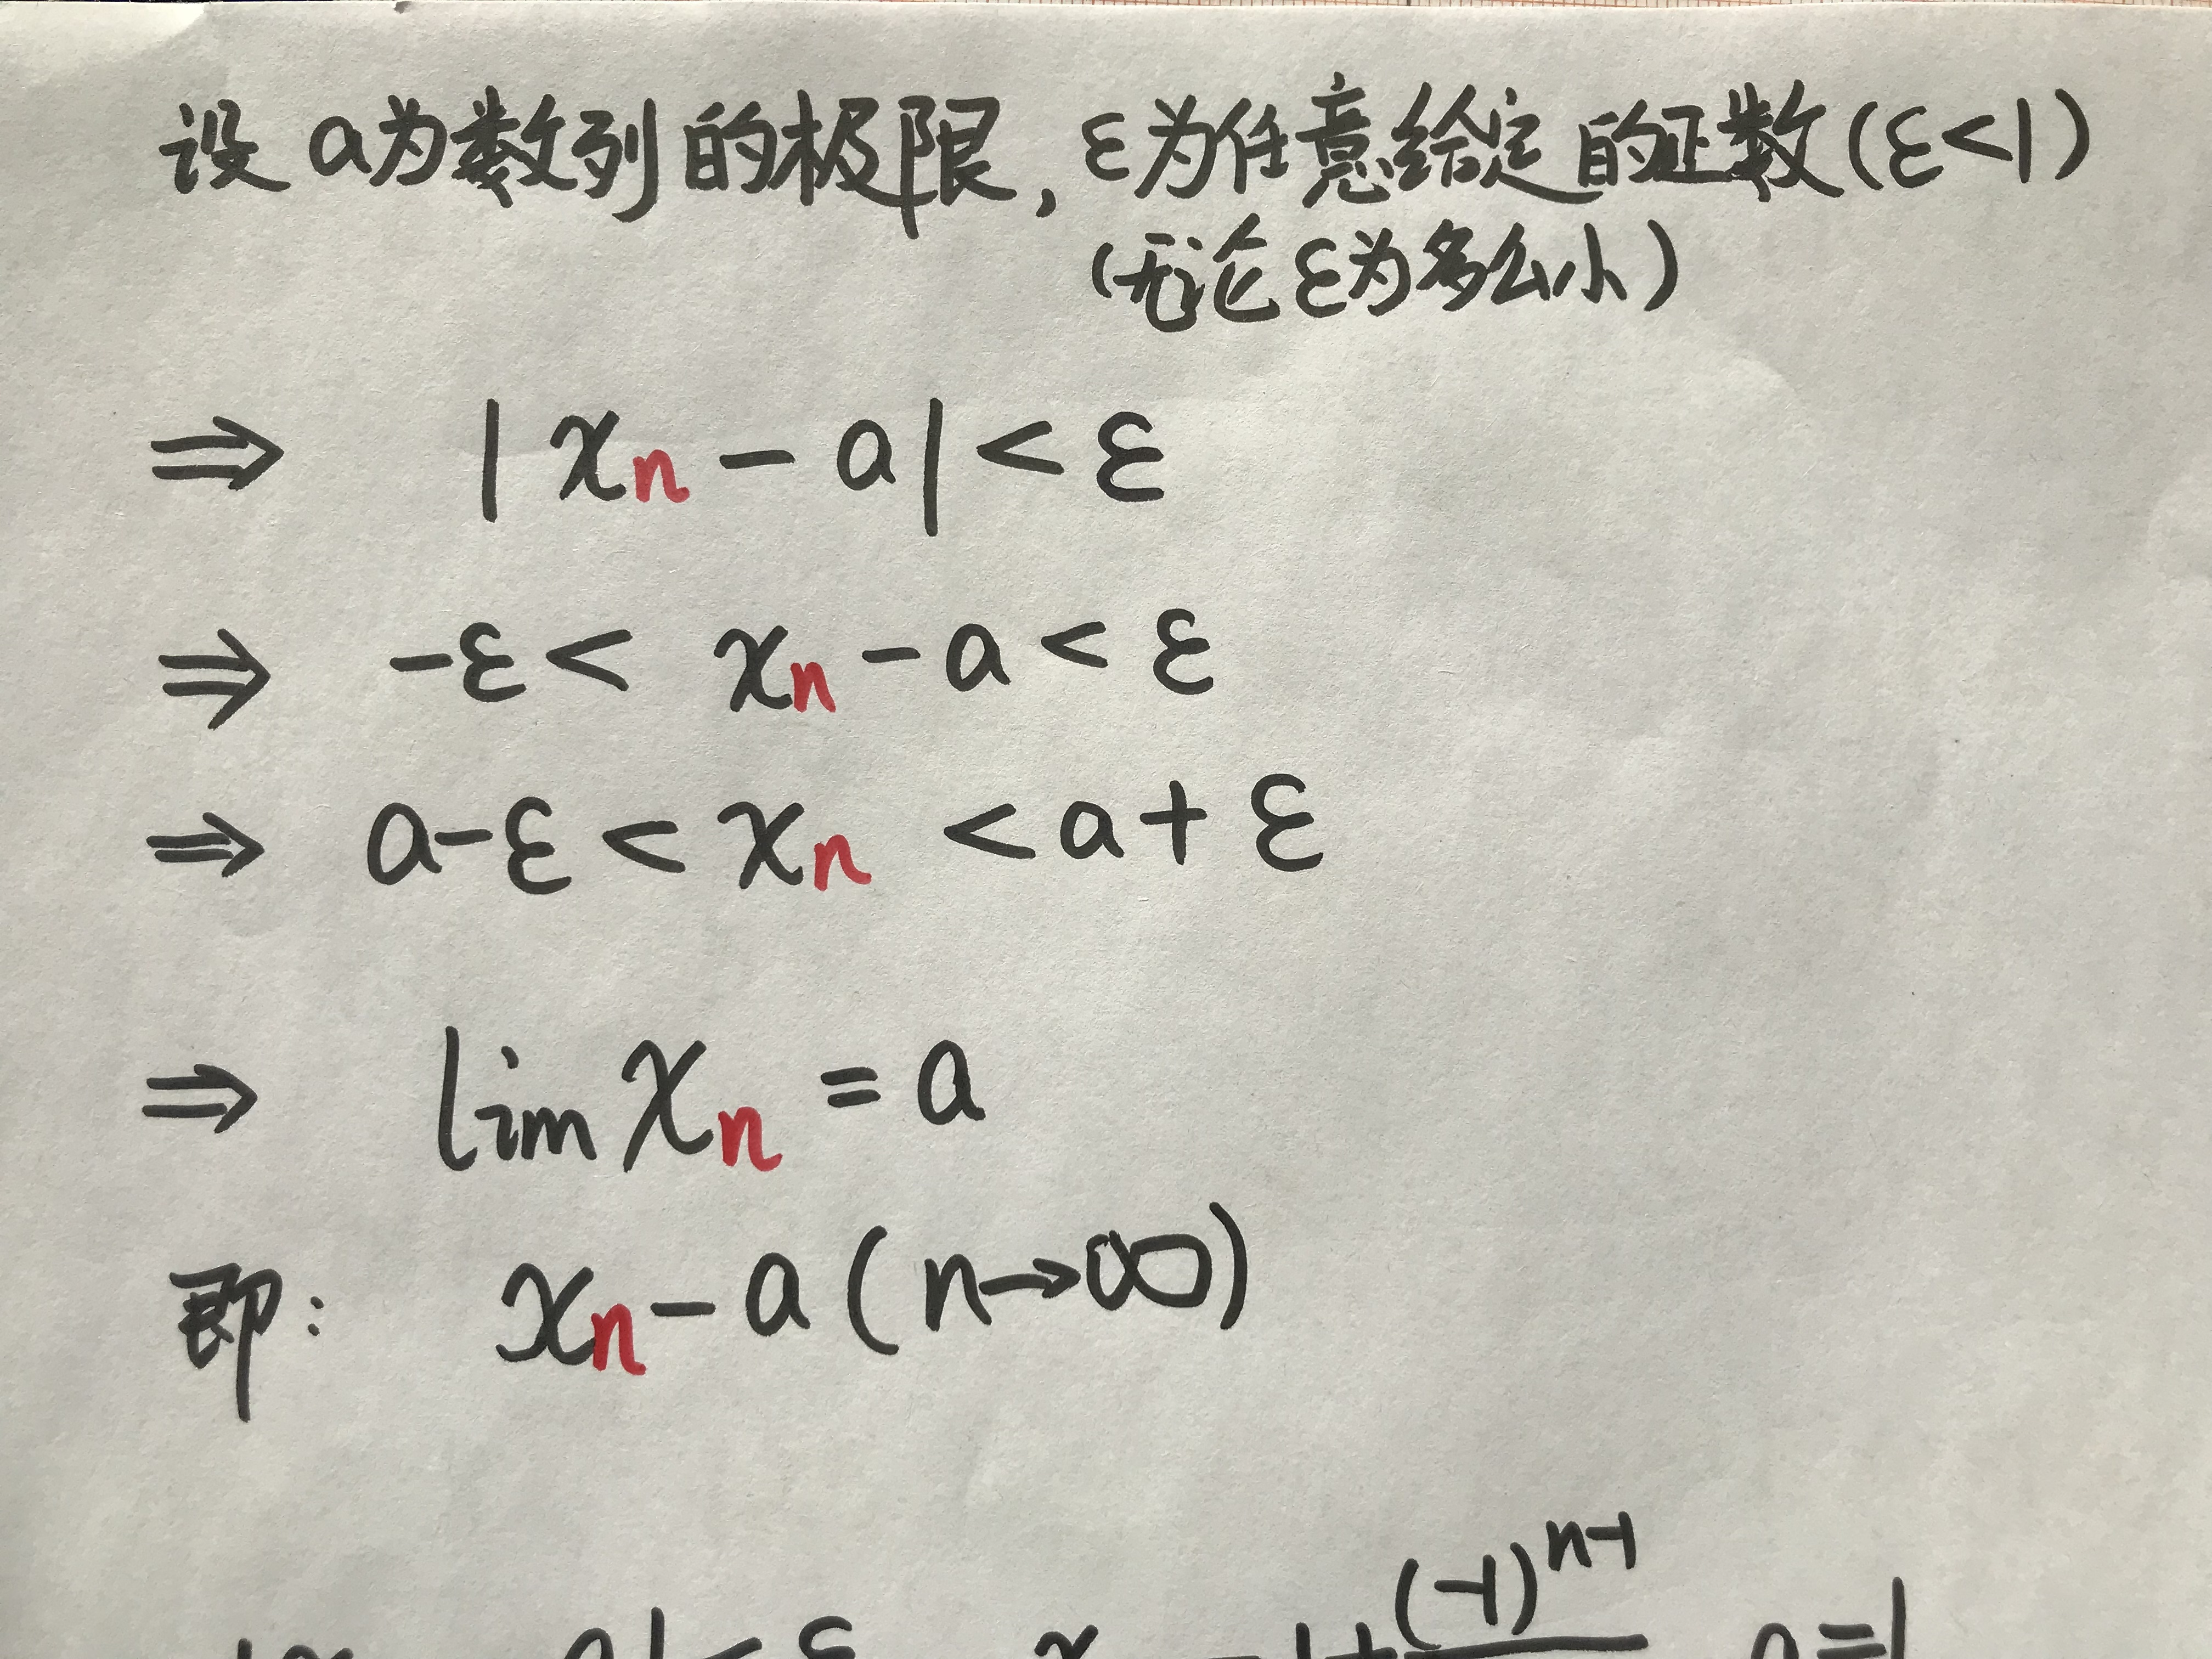 设a为数列的极限,ε为任意给定的正数(ε<1)
(无论ε为多么小)
⇒ |xn-a|<ε
⇒ -ε< xn-a<ε
⇒ a-ε<xn<a+ε
⇒ lim xn=a
即: xn-a(n→∞)
(-1)^n-1
a=1